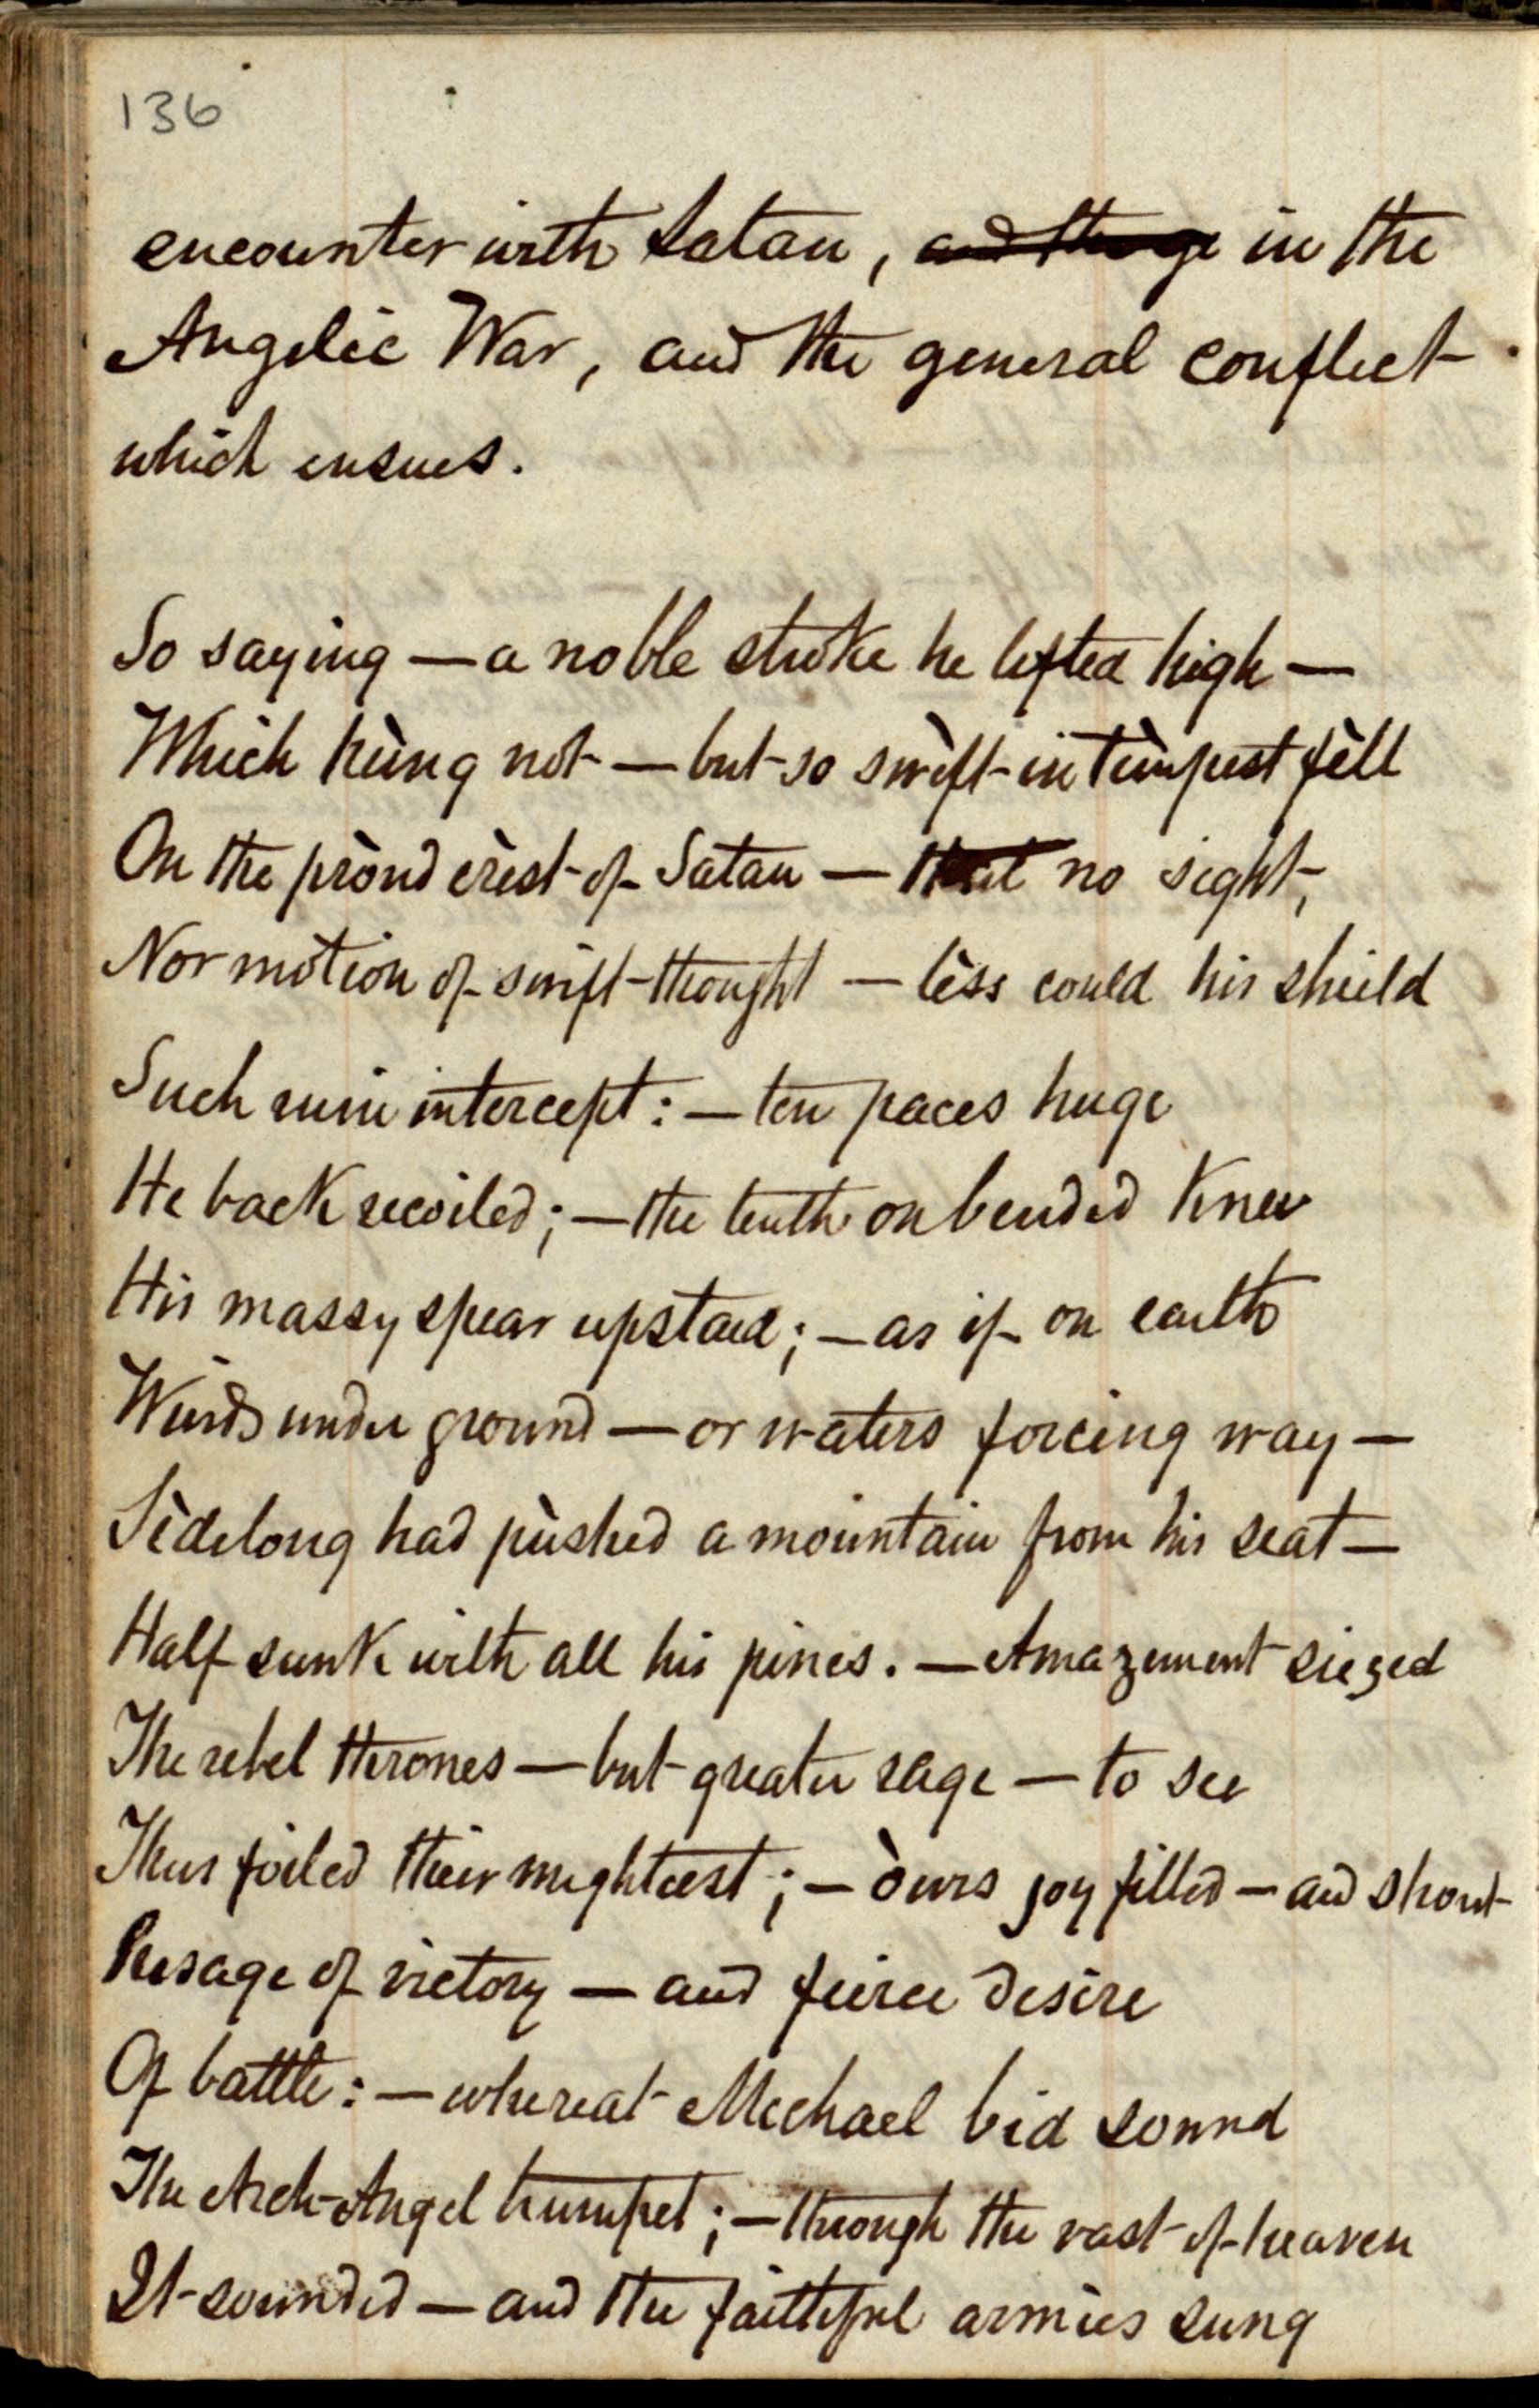 136
encounter with Satan, in the
Angelic War, and the general conflict
which ensues.
So saying — a noble stroke he lifted high —
Which hùng not — but so swìft in tèmpest fèll
On the pròud crèst of Satan — that no sight,
Nor mótion of swift thought — lèss could his shield
Such ruin intercept: — ten paces huge
He back recoiled; — the tenth on bended Knee
His massy spear upstaid; — as if on earth
Winds under ground — or waters forcing way —
Sìdelong had pùshed a mountain from his seat —
Half sunk with all his pines. — Amazement siezed
The rebel thrones — but greater rage — to see
Thus foiled their mightiest; — òurs joy filled — and shout
Presage of victory — and feirce desire
Of battle: — whereat Michael bid sound
The Arch-Angel trumpet; — through the vast of heaven
It sounded — and the faithful armies sung